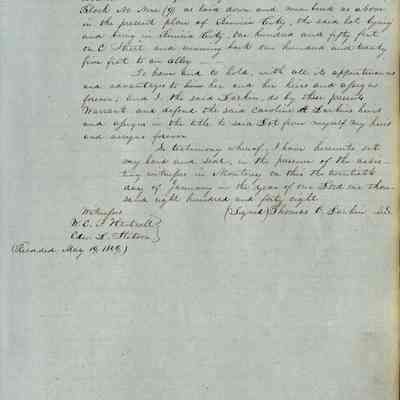 Block No Nine (9) as laid down and numbered as above
in the present plan of Benicia City, the said lot lying
and being in Benicia City, one hundred and fifty feet
on C Street and running back one hundred and twenty
five feet to an alley
To have and to hold, with all its appurtenances
and advantages to him her and her heirs and assigns
forever, and I the said Larkin, do by these presents
Warrant and defend the said Caroline A Larkins heirs
and assigns in the title to said Lot from myself my heirs
and assigns forever
In testimony whereof, I have hereunto set
my hand and seal, in the presence of the assis-
ting witnesses in Monterey on this the twentieth
day of January in the year of our Lord one thou-
sand eight hundred and forty eight
Witnesses (Signed) Thomas O. Larkin L.S.
W. E. P. Hartnell
Edw. L. Stetson
(Recorded May 19, 1848)